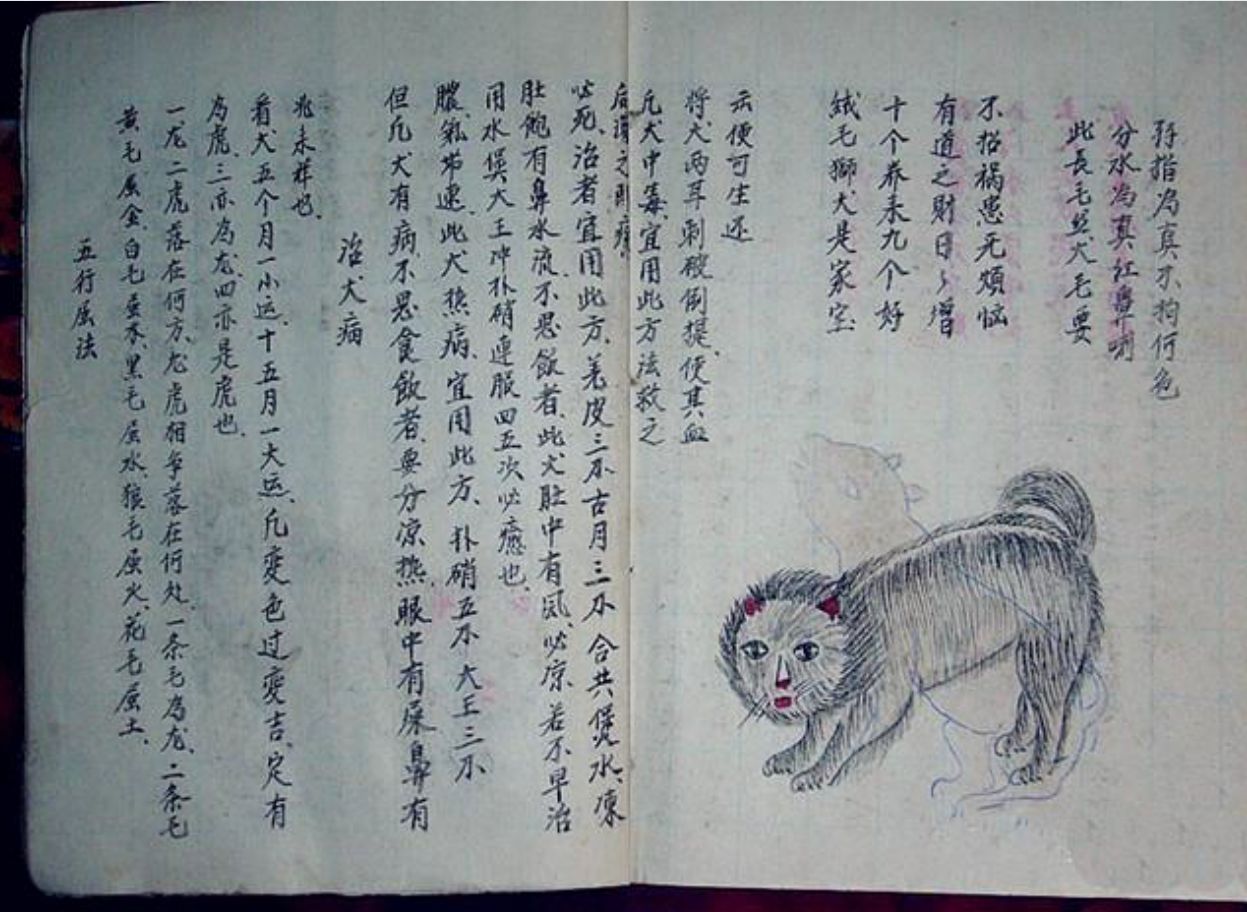 五行屈法
黄毛屈金、白毛屈木、黑毛屈水、狼毛屈火、花毛屈土、
一龙二虎落在何方、龙虎相争落在何处、一条毛为龙、二条毛
为虎、三亦为龙、四亦是虎也、
看犬五个月一小运、十五月一大运、凡变色过变吉、定有
兆未祥也、
治犬病
但凡犬有病、不思食飲者、要分凉热、眼中有屎鼻有
膿、氣带速、此犬热病、宜用此方、朴硝五不 大王三不
用水煲大王冲朴硝連服四五次必癒也、
肚飽有鼻水流、不思飲者、此犬肚中有风、必凉、若不早治
必死、治者宜用此方、羌皮三不古月三不合共煲水、凍
后灌之即瘥、
凡犬中毒、宜用此方法救之
将犬两耳刺破倒提、使其血
云便可生还
绒毛獅犬是家宝
十个养来九个好
有道之財日々增
不招祸患无煩恼
此長毛丝犬毛要
分水为真红鼻明
指为真不拘何色